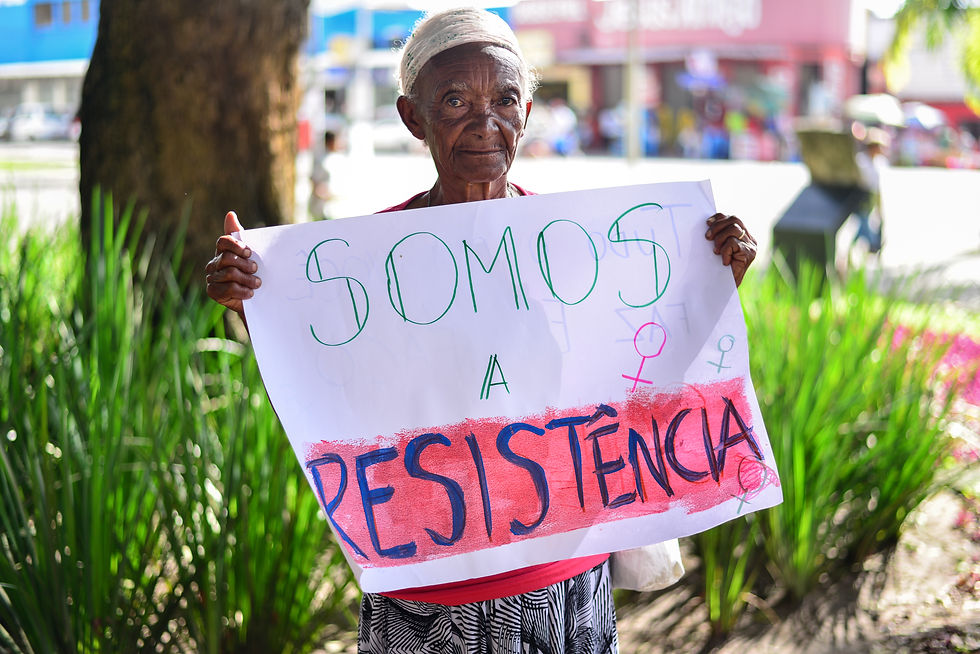 SOMOS
A
RESISTÊNCIA